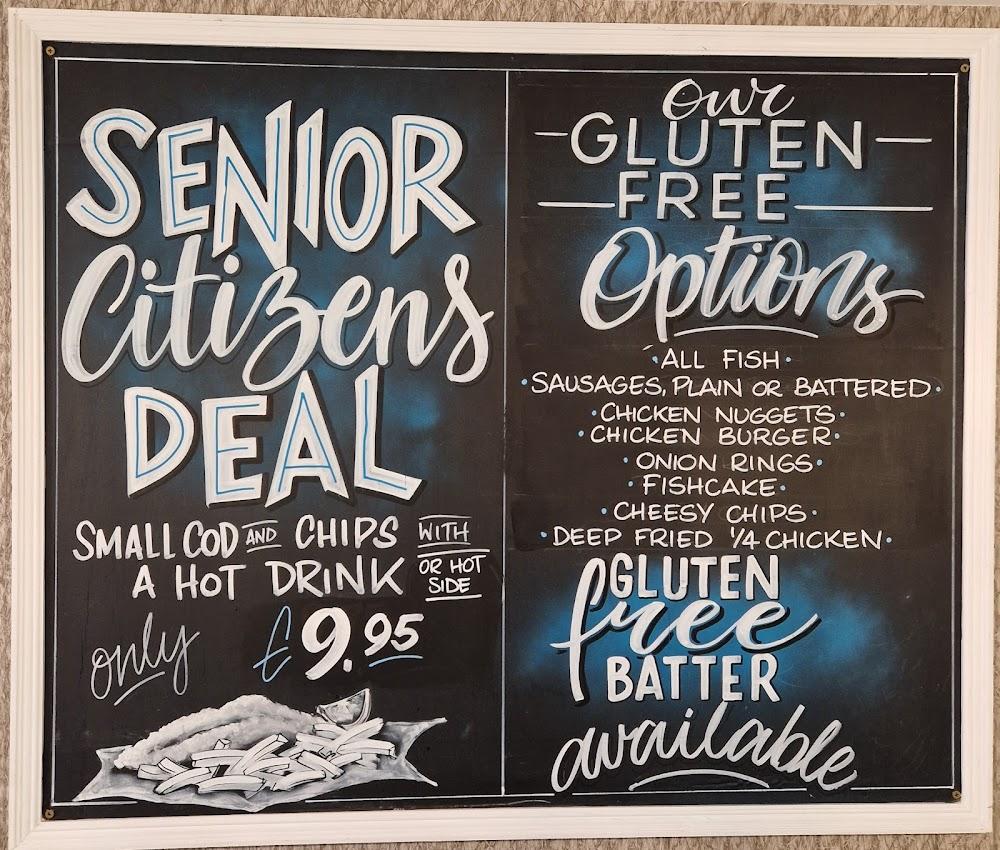 SENIOR
Citizens
DEAL
SMALL COD AND CHIPS WITH
A HOT DRINK OR HOT SIDE
only £9.95
our
GLUTEN
FREE
Options
·ALL FISH·
·SAUSAGES, PLAIN OR BATTERED·
·CHICKEN NUGGETS·
·CHICKEN BURGER·
·ONION RINGS·
·FISHCAKE·
·CHEESY CHIPS·
·DEEP FRIED 1/4 CHICKEN·
GLUTEN
free
BATTER
available